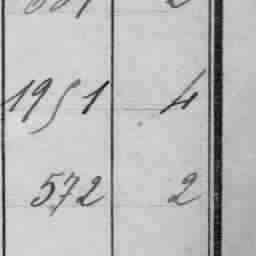 1951 4
572 2